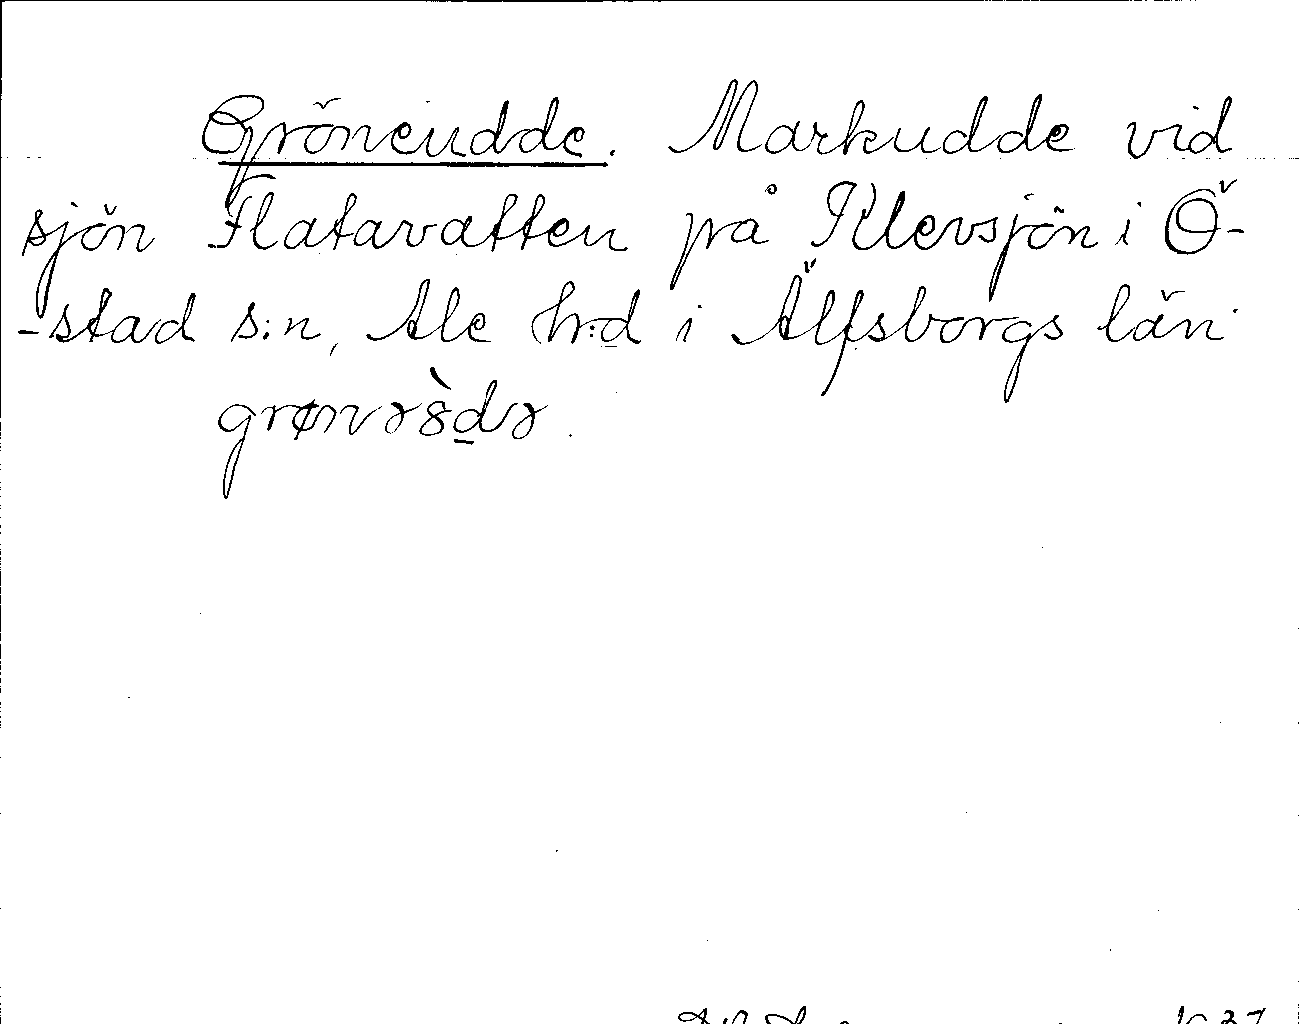 Gröneudde. Markudde vid
sjön Flatavatten på Klevsjön i Ö-
-stad s:n, Ale h:d i Älfsborgs län